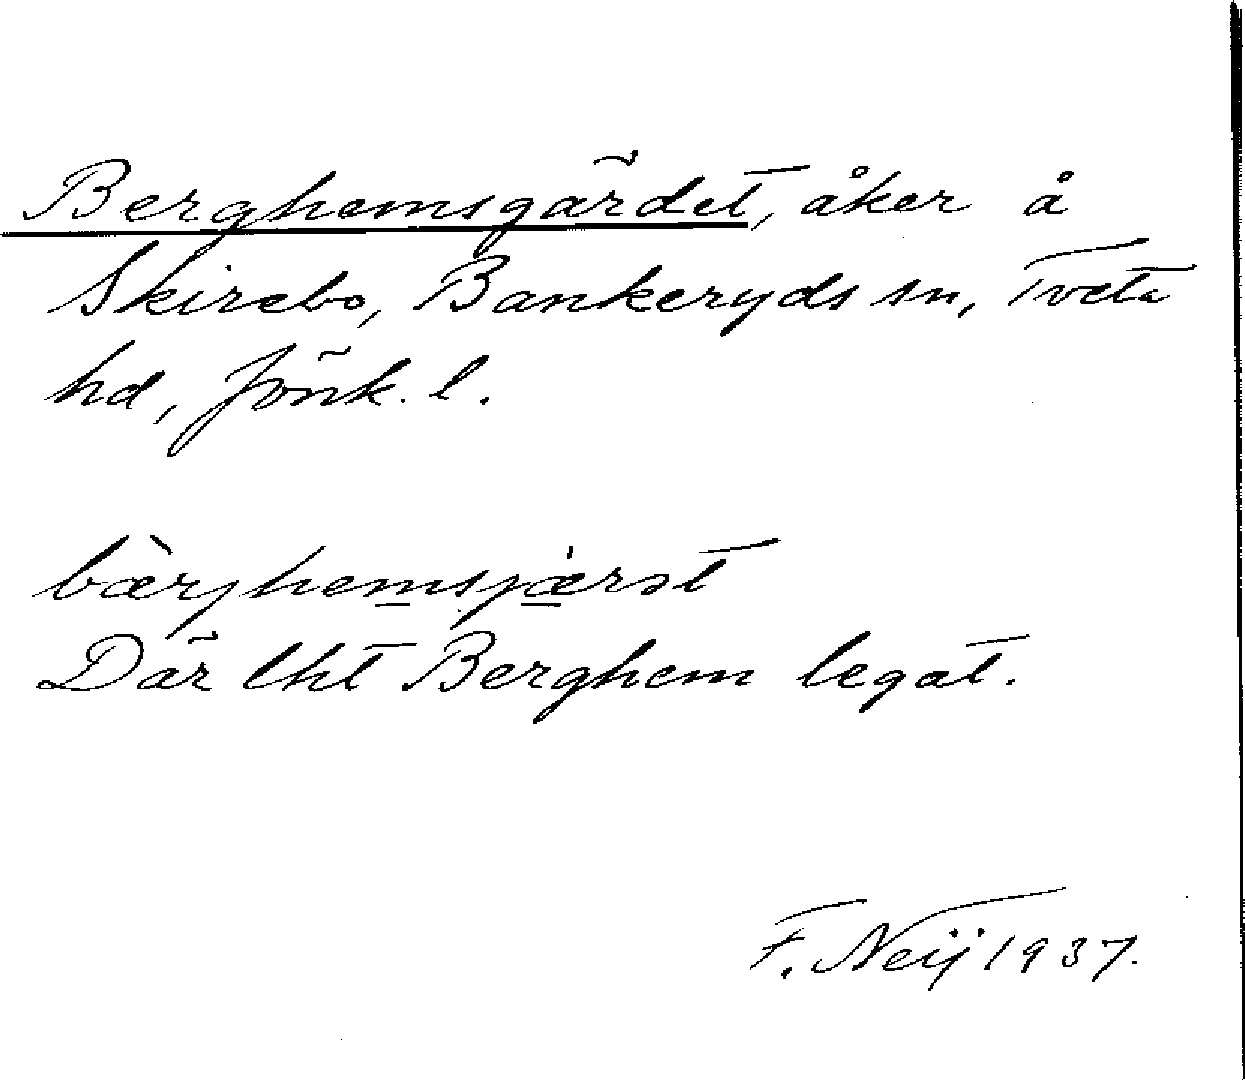 Berghemsgärdet, åker å
Skirebo, Bankeryds sn, Tveta
hd, Jönk. l.
bæ̀rjhemsjæ̇rət
Där lht Berghem legat.
F. Neij 1937.